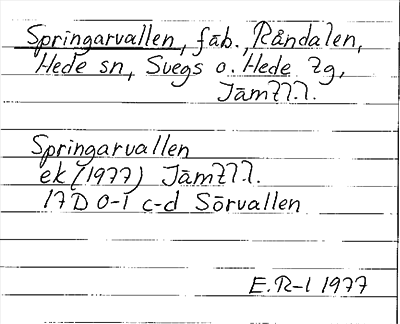 Springarvallen, fäb., Råndalen,
Hede sn, Svegs o. Hede tg,
Jämtl l.
Springarvallen
ek (1977) Jämtl l.
17D 0-1 c-d Sörvallen
E.R-l 1977